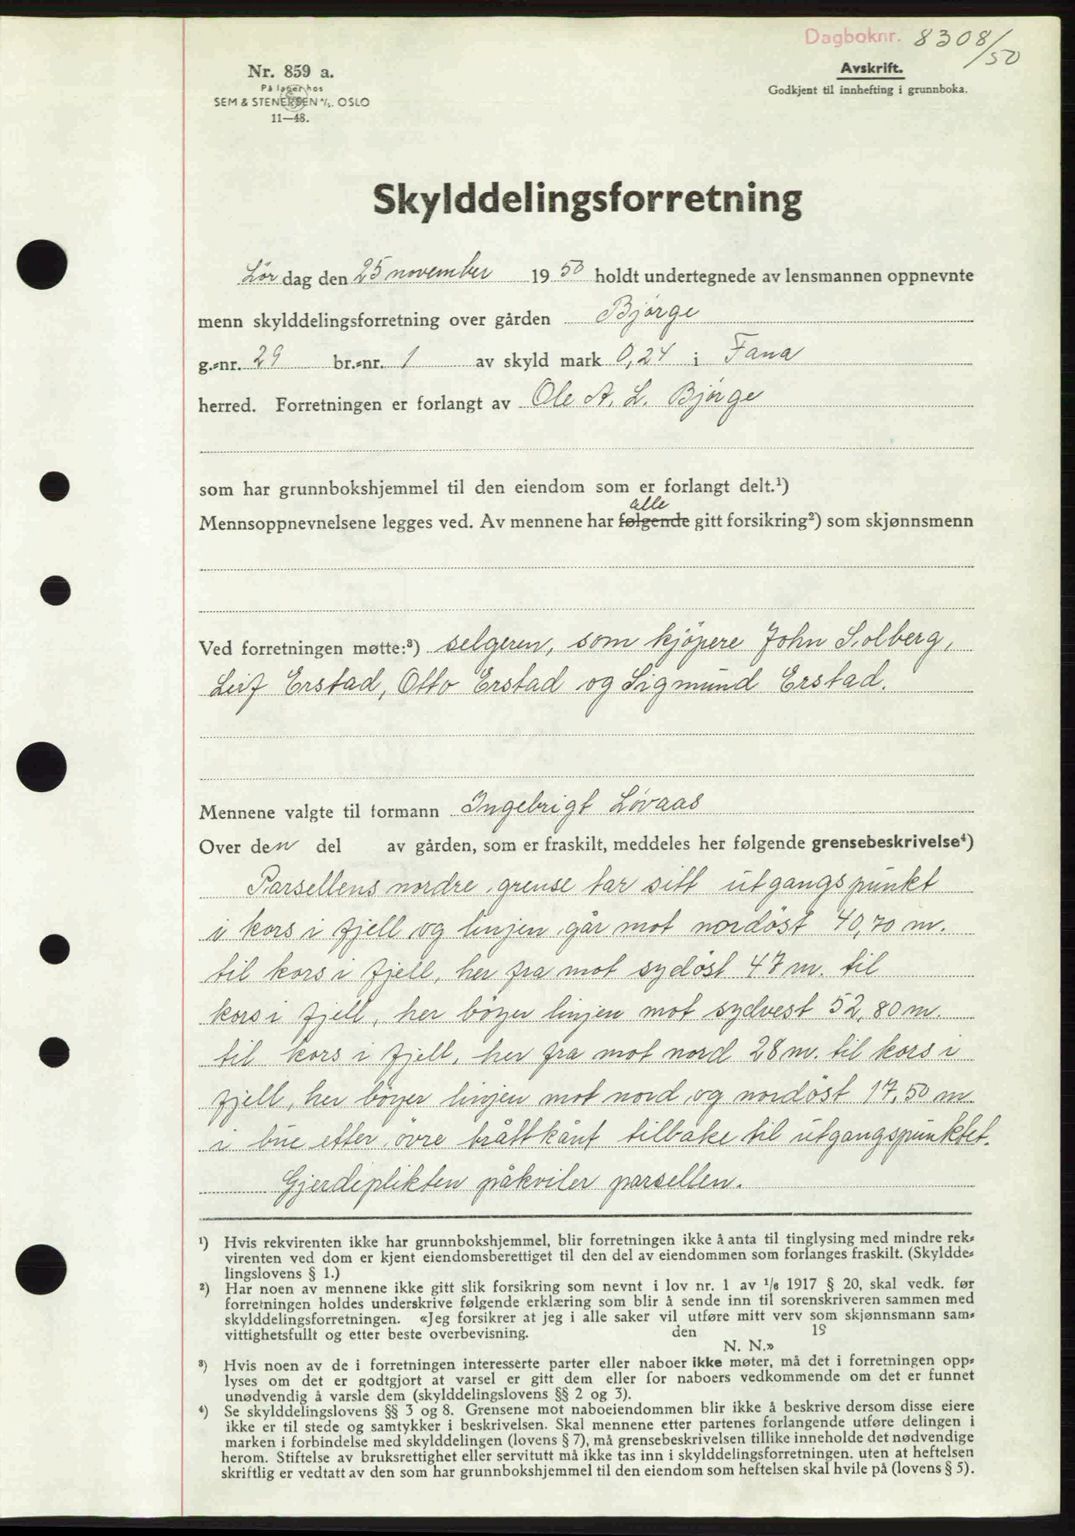 Dagboknr. 8308/50
Nr. 859 a.
På lager hos
SEM & STENERSEN A/S. OSLO
11—48.
Avskrift.
Godkjent til innhefting i grunnboka.
Skylddelingsforretning
Lørdag den 25 november 1950 holdt undertegnede av lensmannen oppnevnte
menn skylddelingsforretning over gården Bjørge
g.-nr. 29 br.-nr. 1 av skyld mark 0,24 i Fana
herred. Forretningen er forlangt av Ole A. L. Bjørge
som har grunnbokshjemmel til den eiendom som er forlangt delt.¹)
alle
Mennsoppnevnelsene legges ved. Av mennene har følgende gitt forsikring²) som skjønnsmenn
Ved forretningen møtte:³) selgeren, som kjöpere John Solberg,
Leif Erstad, Otto Erstad og Sigmund Erstad.
Mennene valgte til formann Ingebrigt Løvaas
Over den del av gården, som er fraskilt, meddeles her følgende grensebeskrivelse⁴)
Parsellens nordre grense tar sitt utgangspunkt
i kors i fjell og linjen går mot nordöst 40,70 m.
til kors i fjell, her fra mot sydöst 47 m. til
kors i fjell, her böyer linjen mot sydvest 52,80 m.
til kors i fjell, her fra mot nord 28 m. til kors i
fjell, her böyer linjen mot nord og nordöst 17,50 m.
i bue etter övre bråttkant tilbake til utgangspunktet.
Gjerdeplikten påkviler parsellen.
¹) Hvis rekvirenten ikke har grunnbokshjemmel, blir forretningen ikke å anta til tinglysing med mindre rek-
virenten ved dom er kjent eiendomsberettiget til den del av eiendommen som forlanges fraskilt. (Skyldde-
lingslovens § 1.)
²) Har noen av mennene ikke gitt slik forsikring som nevnt i lov nr. 1 av 1/6 1917 § 20, skal vedk. før
forretningen holdes underskrive følgende erklæring som blir å sende inn til sorenskriveren sammen med
skylddelingsforretningen. «Jeg forsikrer at jeg i alle saker vil utføre mitt verv som skjønnsmann sam-
vittighetsfullt og etter beste overbevisning. den 19
N. N.»
³) Hvis noen av de i forretningen interesserte parter eller naboer ikke møter, må det i forretningen opp-
lyses om det er godtgjort at varsel er gitt dem eller for naboers vedkommende om det er funnet
unødvendig å varsle dem (skylddelingslovens §§ 2 og 3).
⁴) Se skylddelingslovens §§ 3 og 8. Grensene mot naboeiendommen blir ikke å beskrive dersom disse eiere
ikke er til stede og samtykker i beskrivelsen. Skal mennene etter partenes forlangende utføre delingen i
marken i forbindelse med skylddelingen (lovens § 7), må grensebeskrivelsen tillike inneholde det nødvendige
herom. Stiftelse av bruksrettighet eller servitutt må ikke tas inn i skylddelingsforretningen. uten at heftelsen
skriftlig er vedtatt av den som har grunnbokshjemmel til den eiendom som heftelsen skal hvile på (lovens § 5).